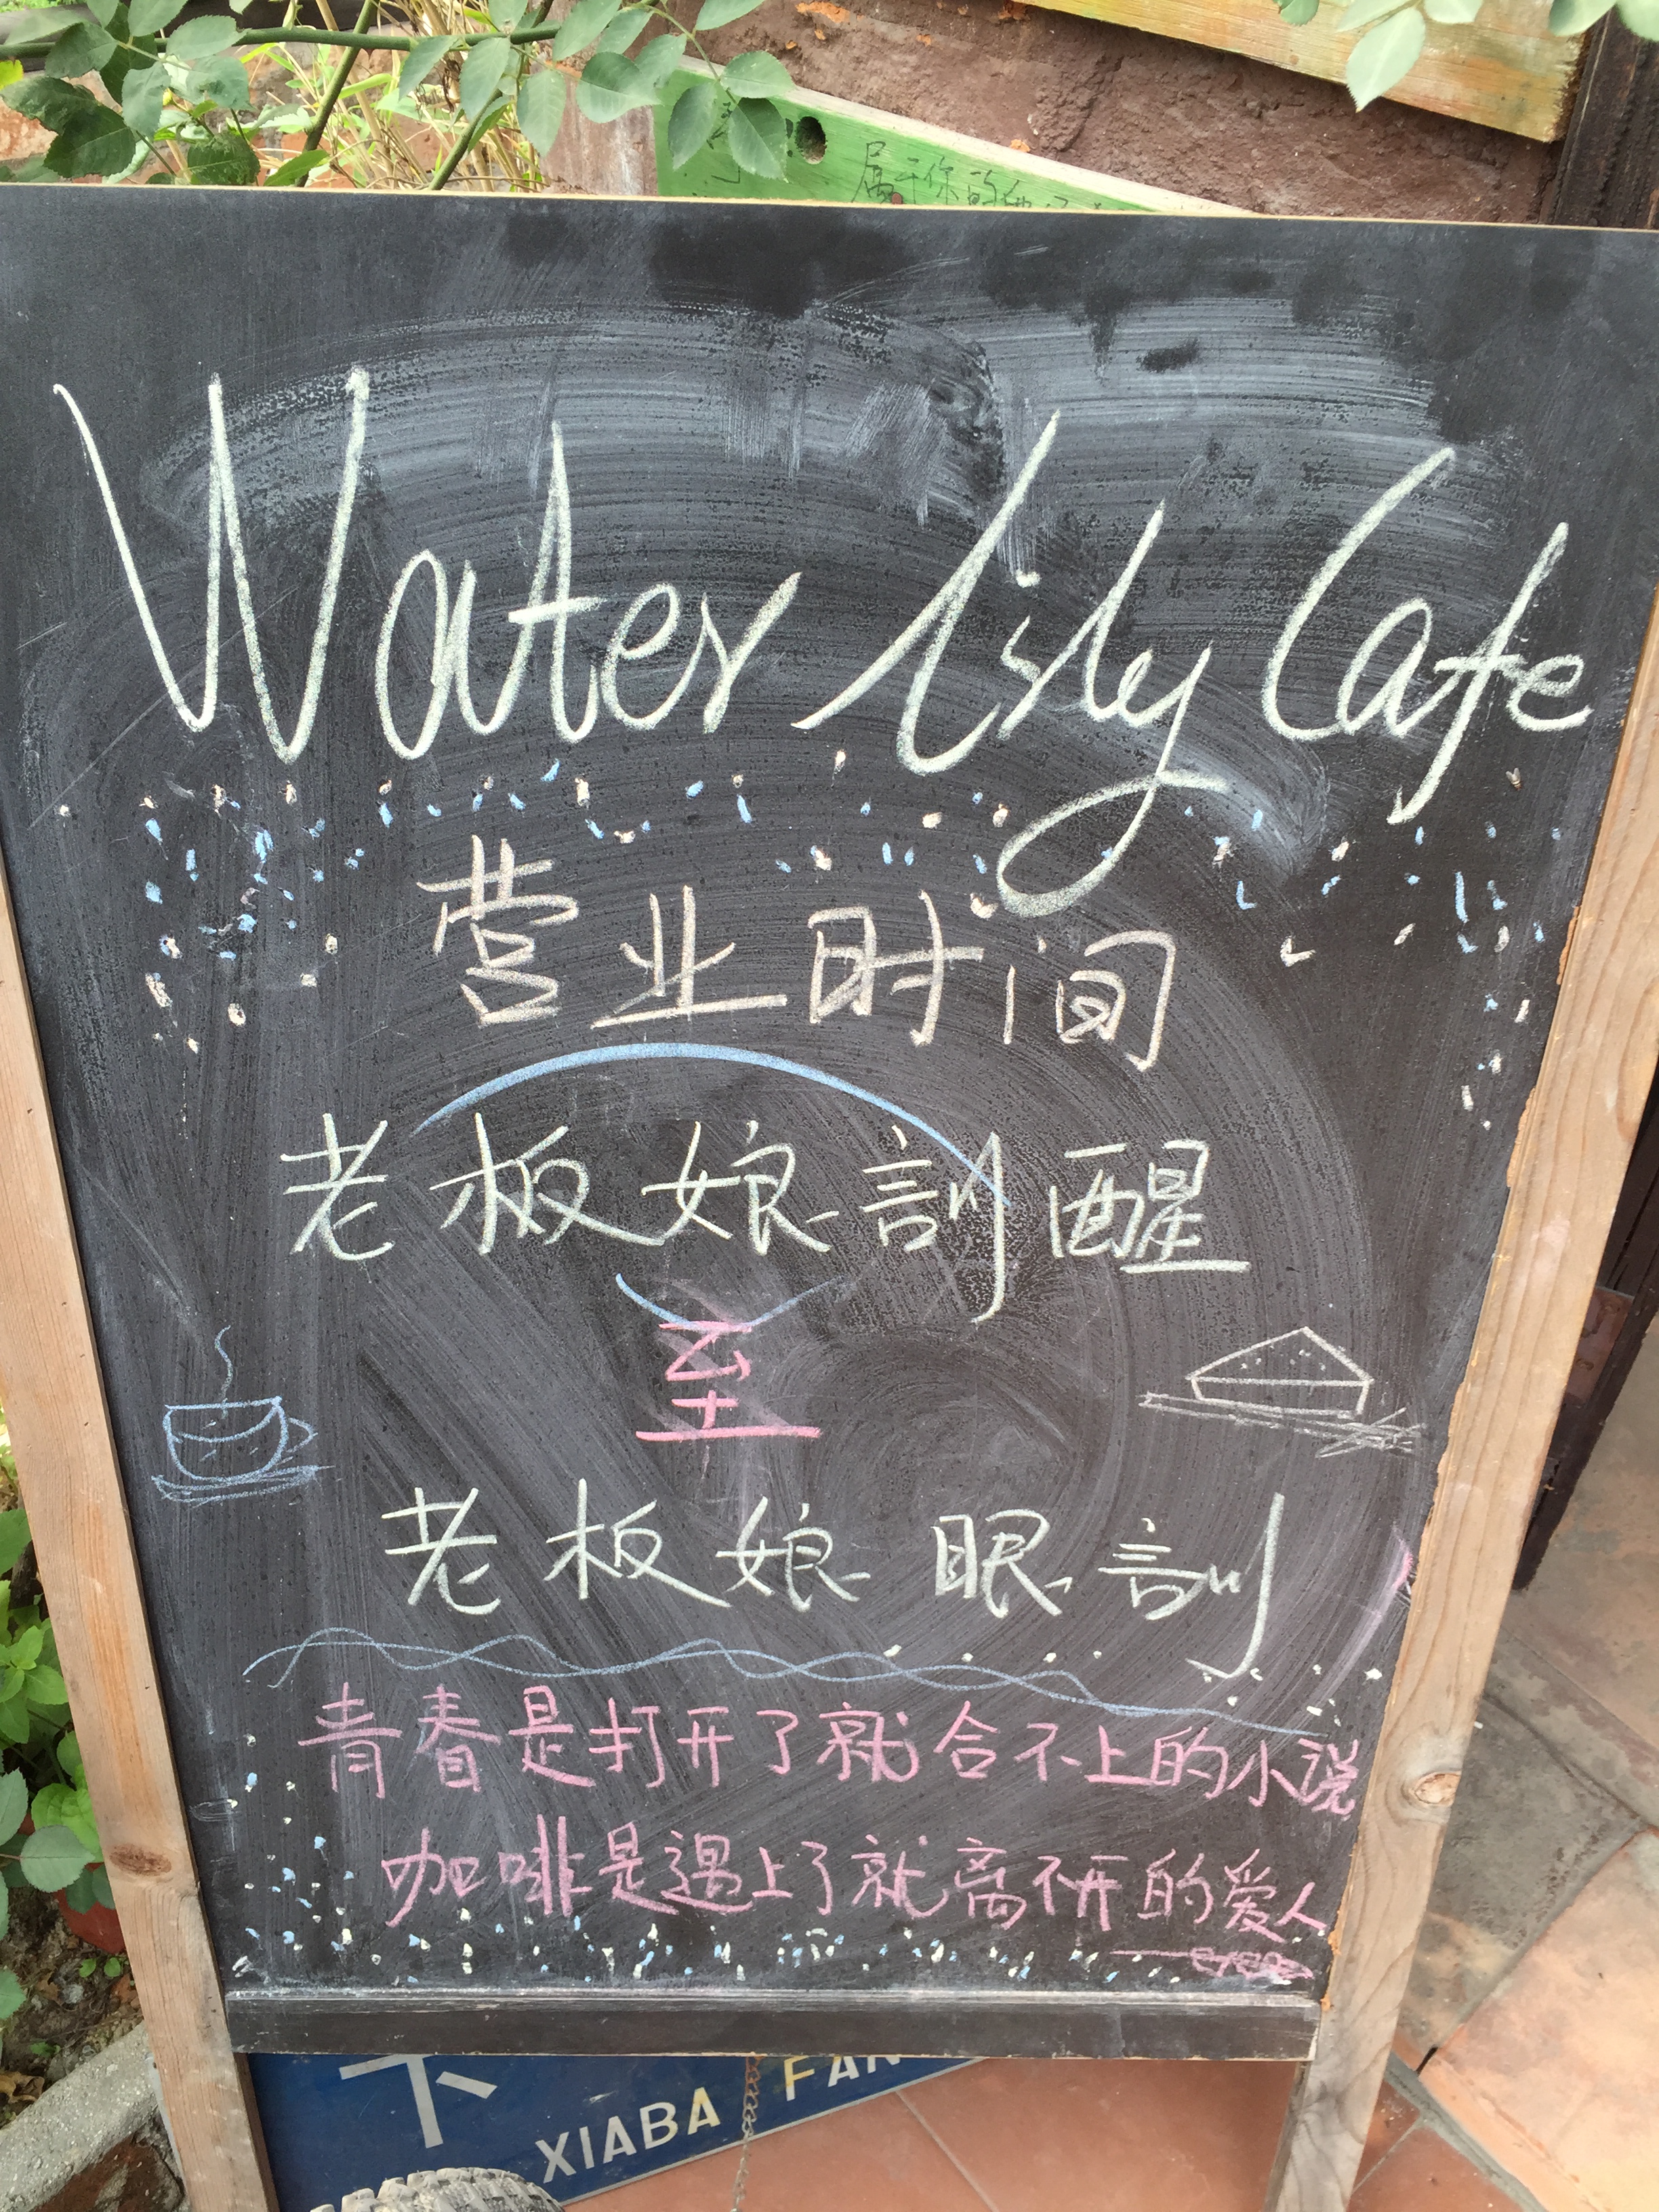 属于你的
Water lily Cafe
营业时间
老板娘訓醒
至
老板娘眼訓
青春是打开了就合不上的小说
咖啡是遇上了就离不开的爱人
下
XIABA FAN